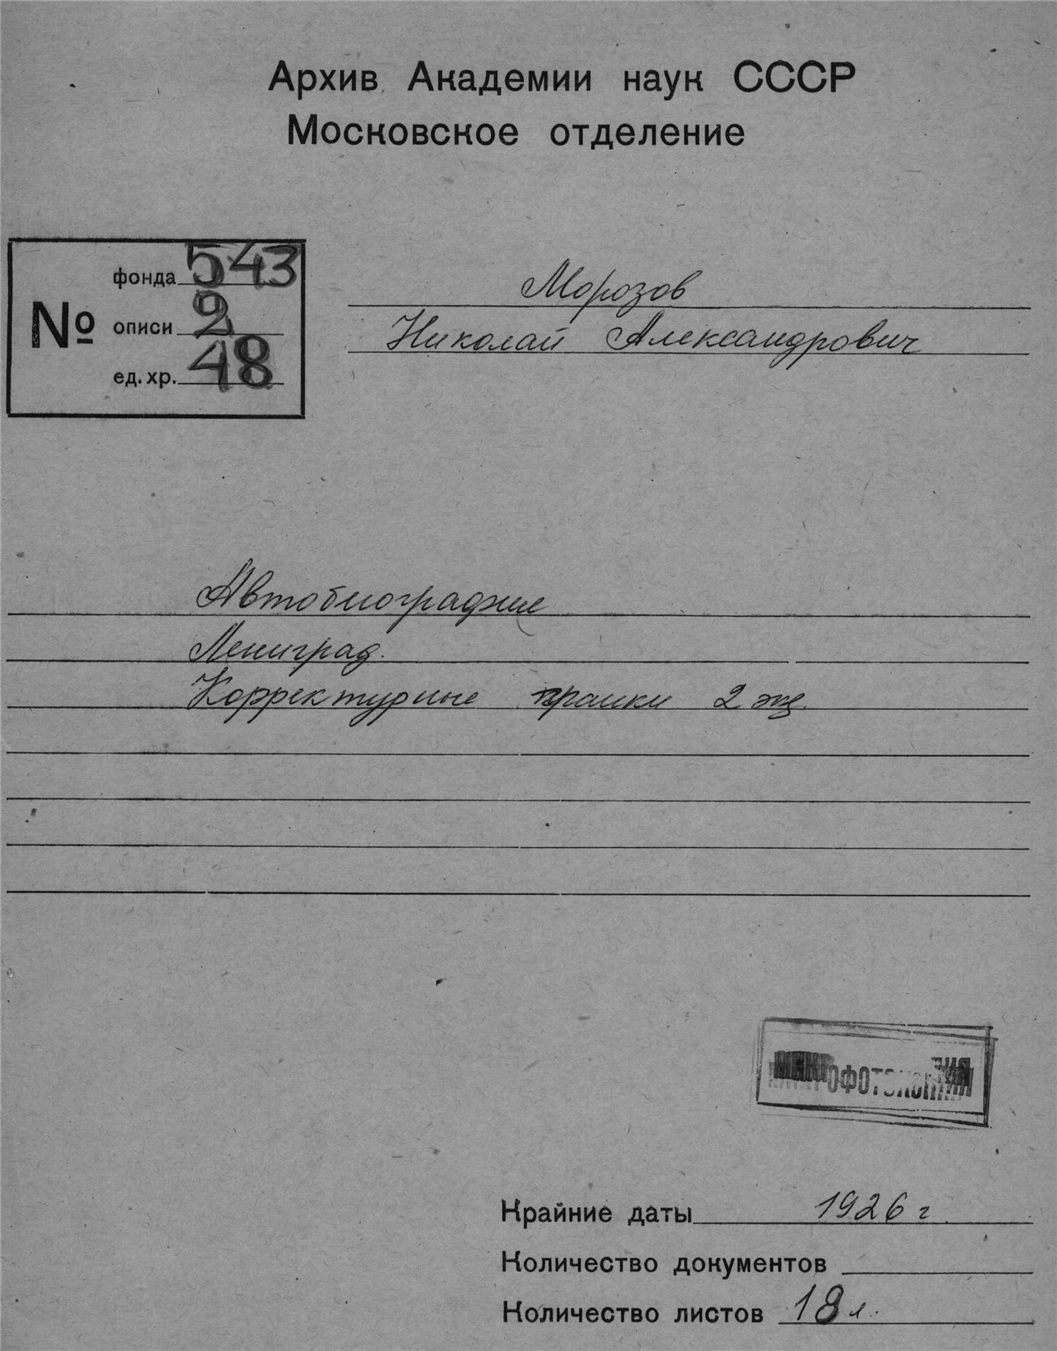 Архив Академии наук СССР
Московское отделение
№
фонда 543
описи 2
ед. хр. 48
Морозов
Николай Александрович
Автобиография
Ленинград.
Корректурные гранки 2 экз.
Крайние даты 1926 г.
Количество документов
Количество листов 18 л.